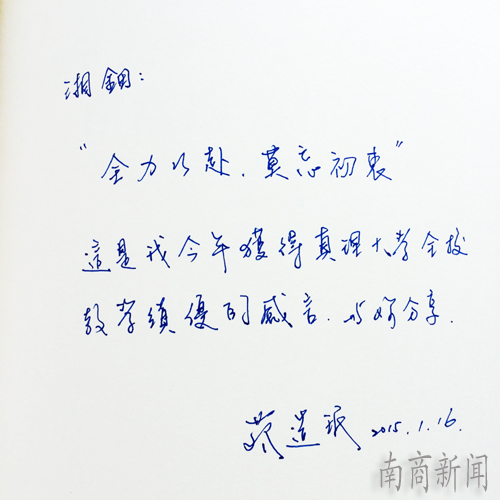 湘鈿：
“全力以赴，莫忘初衷”
這是我今年獲得真理大學全校
教學績優的感言，與妳分享．
蔡遣珉 2015.1.16.
南商新闻